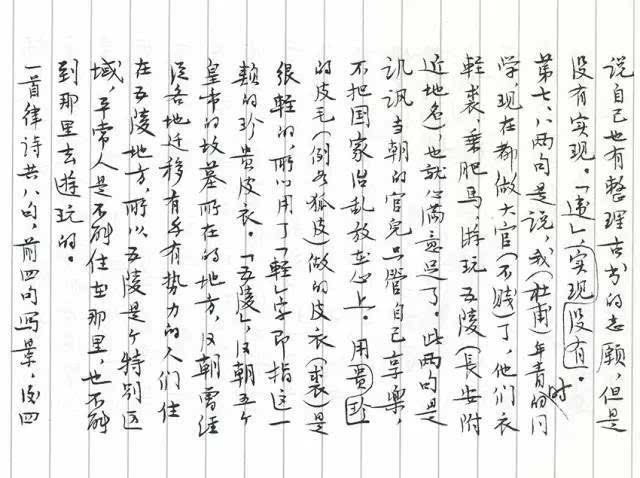 说自己也有整理古书的志愿，但是
没有实现。「违」（实现没有）。
第七、八两句是说，我（杜甫）年青时的同
学，现在都做大官（不贱）了，他们衣
轻裘，乘肥马，游玩五陵（長安附
近地名），也就心满意足了。此两句是
讥讽当朝的官儿只管自己享乐，
不把国家治乱放在心上。用贵珍
的皮毛（例如狐皮）做的皮衣（裘）是
很轻的，所以用了「轻」字即指这一
类的珍贵皮衣。「五陵」，汉朝五个
皇帝的坟墓所在的地方，汉朝曾经
从各地迁移有钱有势力的人们住
在五陵地方，所以五陵是个特别区
域，平常人是不能住在那里，也不能
到那里去游玩的。
一首律诗共八句，前四句写景，后四